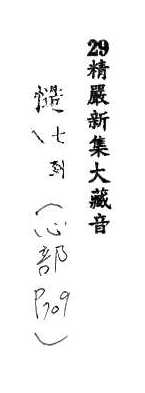 29精嚴新集大藏音
慥 七到（心部P309）